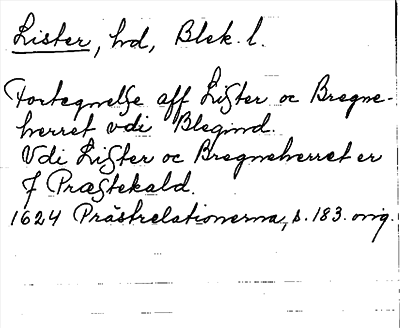 Lister, hd, Blek. l.
Fortegnelse aff Lister oc Bregne-
herret vdi Blegind.
Vdi Lister oc Bregneherret er
7 Præstekald.
1624 Prästrelationerna, s. 183. orig.